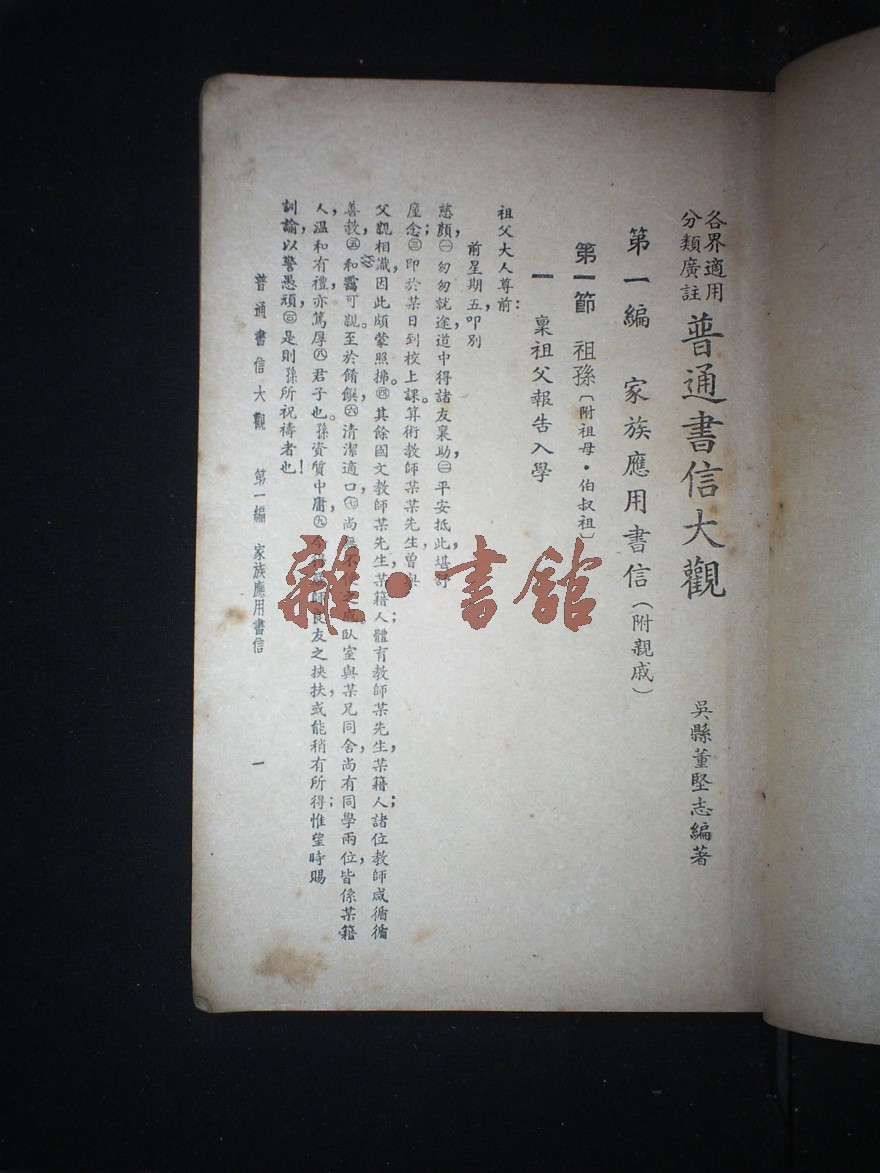 各界適用
分類廣註
普通書信大觀
吳縣董堅志編著
第一編 家族應用書信(附親戚)
第一節 祖孫〔附祖母・伯叔祖〕
一 稟祖父報告入學
祖父大人尊前:
前星期五,叩別
慈顏㊀,匆匆就途,道中得諸友襄助㊁,平安抵此,堪紓
廑念㊂;即於某日到校上課。算術教師某某先生,曾與
父親相識,因此頗蒙照拂。㊃其餘國文教師某先生,某籍人;體育教師某先生,某籍人;諸位教師,咸循循
善教,㊄和靄可親。至於餚饌,㊅清潔適口,㊆尚
臥室與某兄同舍,尚有同學兩位,皆係某籍
人,溫和有禮,亦篤厚㊇君子也。孫資質中庸,㊈
師良友之挾扶,或能稍有所得;惟望時賜
訓諭,以警愚頑,㊉是則孫所祝禱者也!
普通書信大觀 第一編 家族應用書信 一
雜・書館